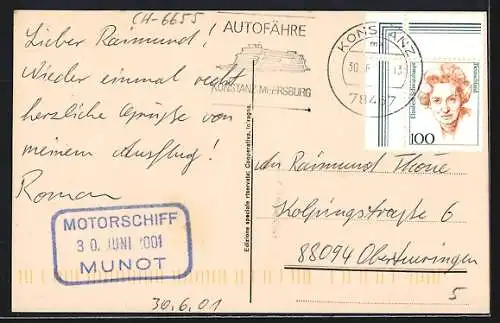 CH-6655
Lieber Raimund!
Wieder einmal recht
herzliche Grüsse von
meinem Ausflug!
Roman
AUTOFÄHRE
KONSTANZ-MEERSBURG
KONSTANZ
30.6. 13
78467
100
MOTORSCHIFF
30. JUNI 2001
MUNOT
30.6.01
Edizione speciale riservata:
An Raimund
Kolpingstraße 6
88094 Oberteuringen
5